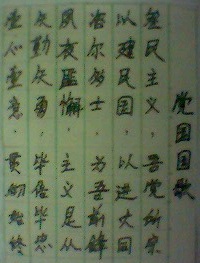 党国国歌
叁民主义,吾党所宗
以建民国,以进大同
咨尔多士,为吾前锋
夙夜匪懈,主义是从
矢勤矢勇,毕信毕忠
壹心壹意,贯彻始终